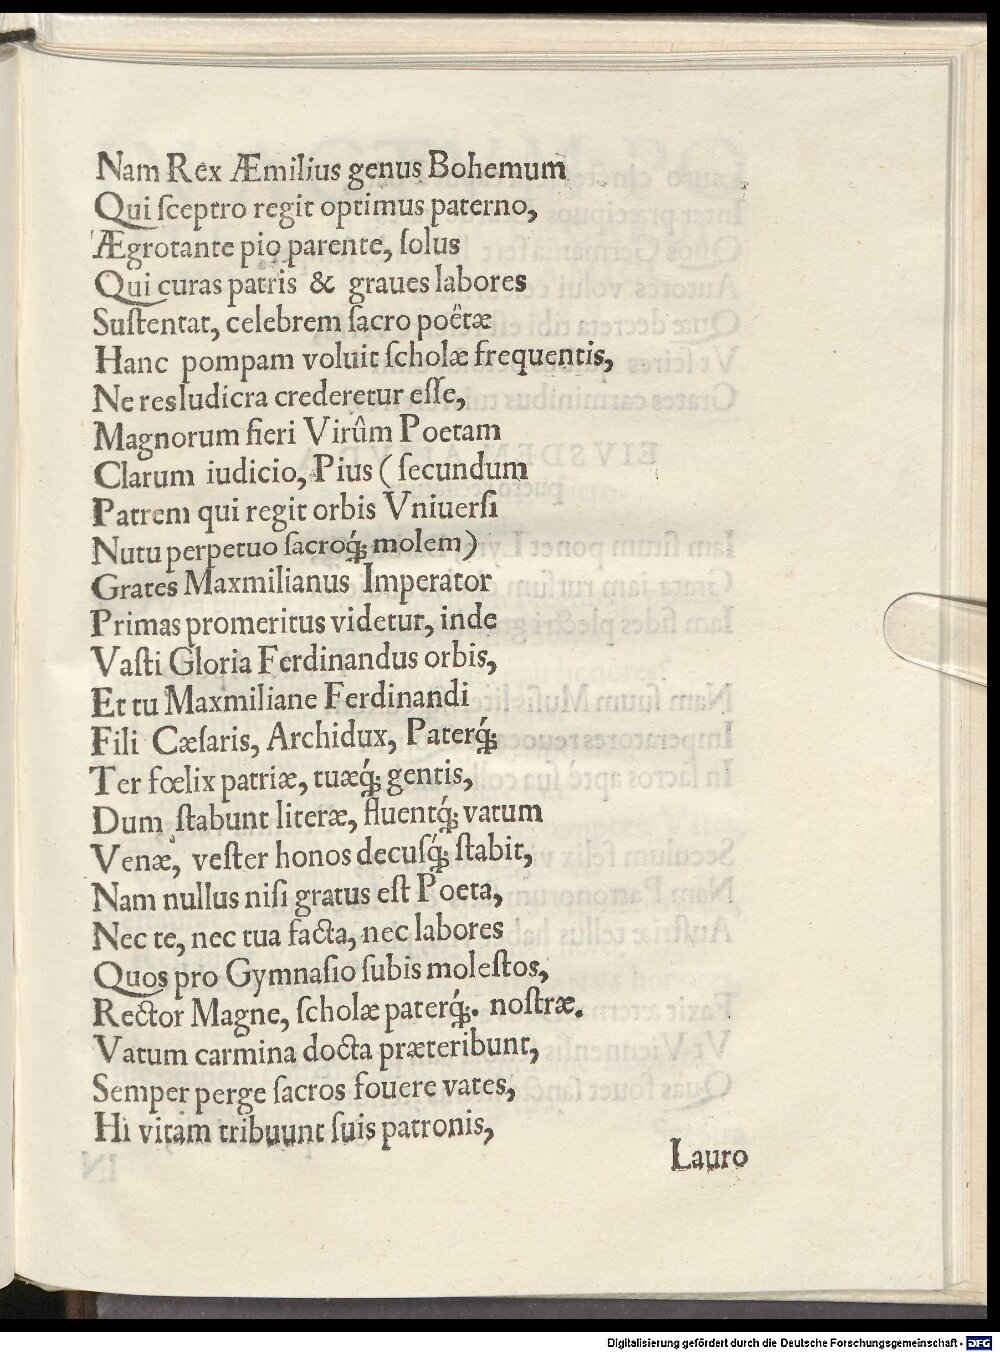 Nam Rex Æmilius genus Bohemum
Qui ſceptro regit optimus paterno,
Ægrotante pio parente, ſolus
Qui curas patris & graues labores
Suſtentat, celebrem ſacro poêtæ
Hanc pompam voluit ſcholæ frequentis,
Ne res ludicra crederetur eſſe,
Magnorum fieri Virûm Poetam
Clarum iudicio, Pius ( ſecundum
Patrem qui regit orbis Vniuerſi
Nutu perpetuo ſacroq́; molem)
Grates Maxmilianus Imperator
Primas promeritus videtur, inde
Vaſti Gloria Ferdinandus orbis,
Et tu Maxmiliane Ferdinandi
Fili Cæſaris, Archidux, Paterq́;
Ter fœlix patriæ, tuæq́; gentis,
Dum ſtabunt literæ, fluentq́; vatum
Venæ, veſter honos decuſq́; ſtabit,
Nam nullus niſi gratus eſt Poeta,
Nec te, nec tua facta, nec labores
Quos pro Gymnaſio ſubis moleſtos,
Rector Magne, ſcholæ paterq́;. noſtræ.
Vatum carmina docta præteribunt,
Semper perge ſacros fouere vates,
Hi vitam tribuunt ſuis patronis,
Lauro
Digitalisierung gefördert durch die Deutsche Forschungsgemeinschaft - DFG